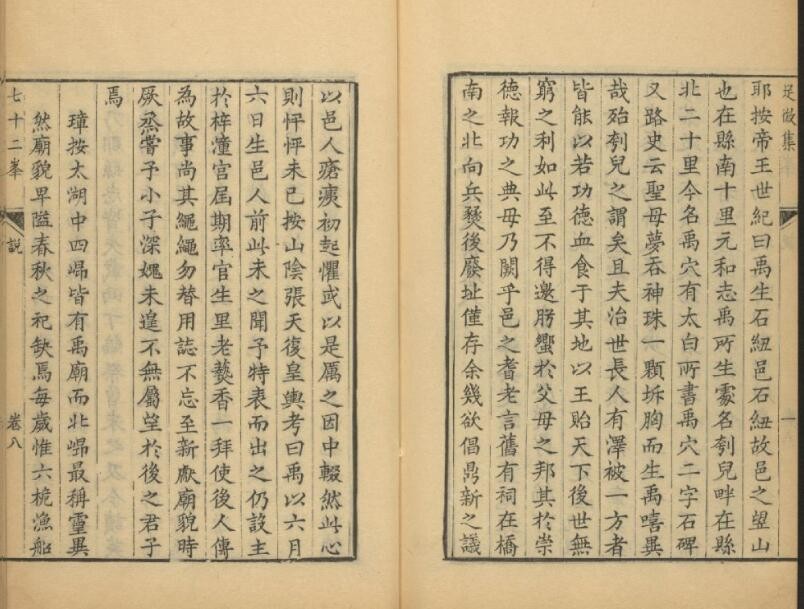 足徵集
耶按帝王世紀曰禹生石紐邑石紐故邑之望山
也在縣南十里元和志禹所生處名刳兒畔在縣
北二十里今名禹穴有太白所書禹穴二字石碑
又路史云聖母夢吞神珠一顆坼胸而生禹嘻異
哉殆刳兒之謂矣且夫治世長人有澤被一方者
皆能以若功德血食于其地以王貽天下後世無
窮之利如此至不得邀肸蠁於父母之邦其於崇
德報功之典毋乃闕乎邑之耆老言舊有祠在橋
南之北向兵燹後廢址僅存余幾欲倡鼎新之議
以邑人瘡痍初起懼或以是厲之因中輟然此心
則怦怦未已按山陰張天復皇輿考曰禹以六月
六日生邑人前此未之聞予特表而出之仍設主
於梓潼宮屆期率官生里老爇香一拜使後人傳
為故事尚其繩繩勿替用誌不忘至新厥廟貌時
厥烝嘗予小子深媿未遑不無屬望於後之君子
焉
璋按太湖中四㠀皆有禹廟而北㠀最稱靈異
然廟貌卑隘春秋之祀缺焉每歲惟六桅漁船
七十二峯
說
卷八